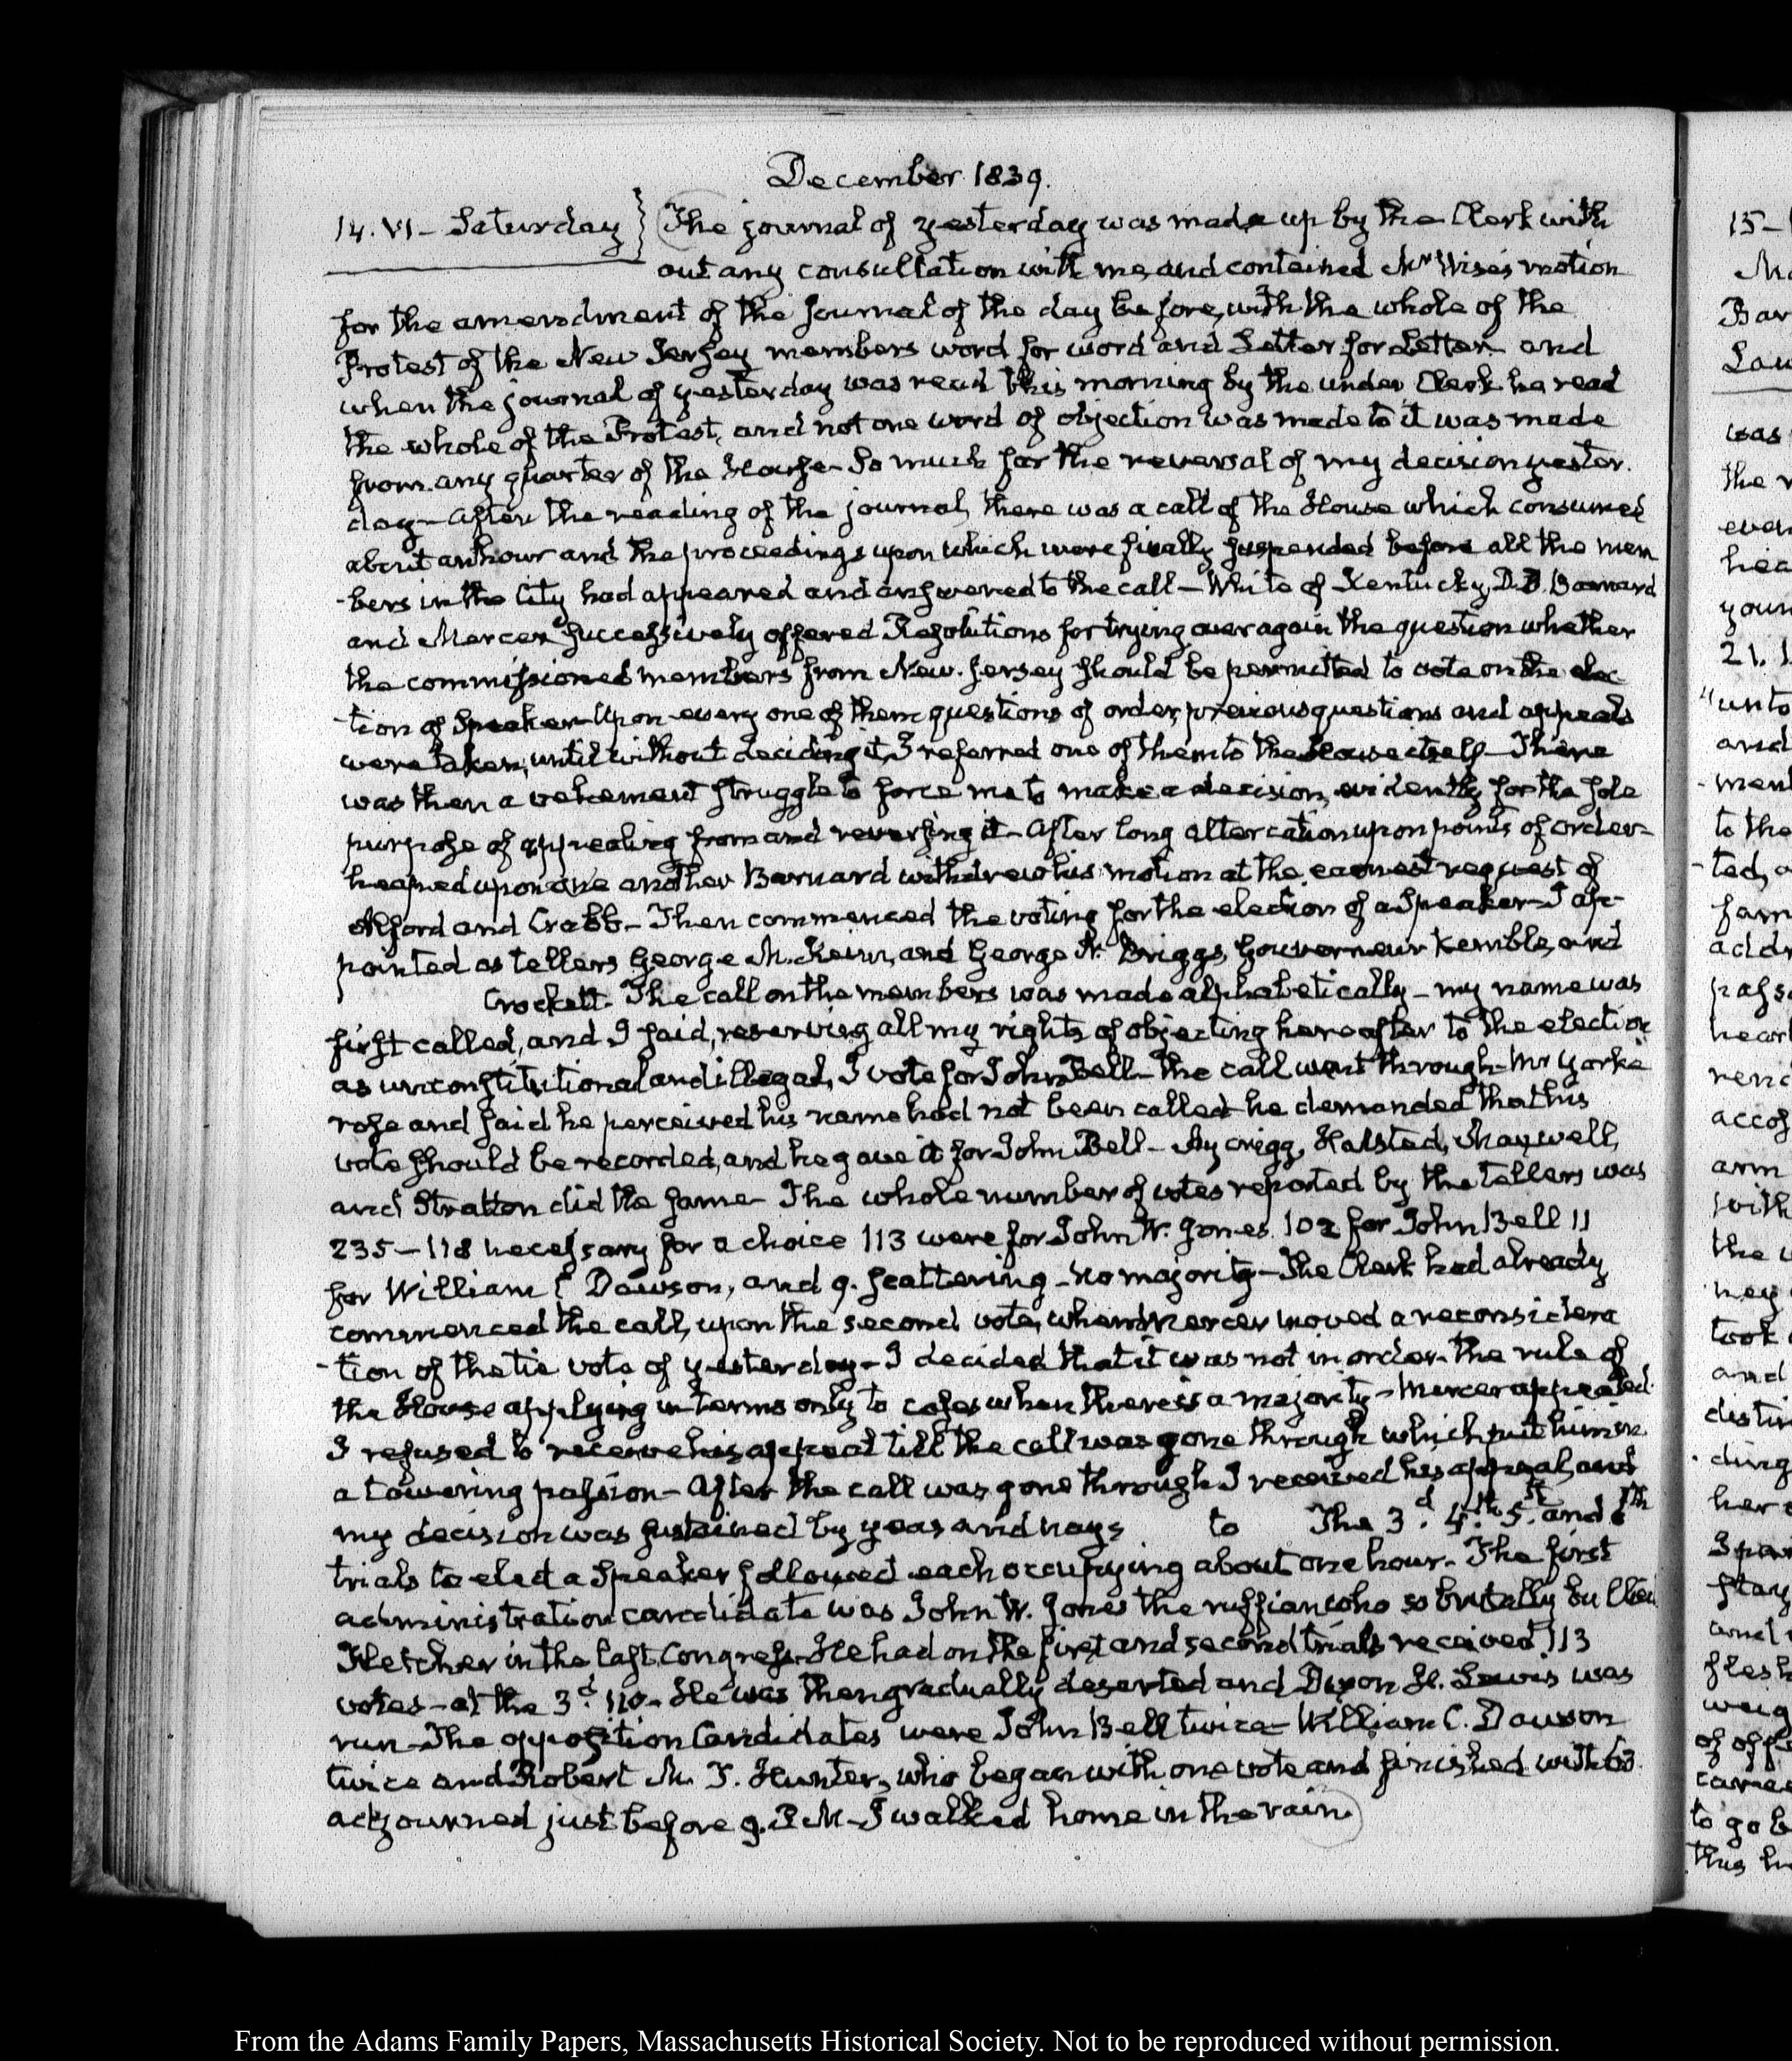 December 1839.
14. VI – Saturday } The journal of yesterday was made up by the Clerk with
out any consultation with me, and contained Mr Wise's motion
for the amendment of the Journal of the day before, with the whole of the
Protest of the New Jersey members word for word and Letter for Letter – and
when the journal of yesterday was read this morning by the under Clerk he read
the whole of the Protest, and not one word of objection was made to it was made
from any quarter of the House – So much for the reversal of my decision yester-
day – After the reading of the journal, there was a call of the House which consumed
about an hour and the proceedings upon which were finally suspended before all the mem
-bers in the City had appeared and answered to the call – White of Kentucky, D. D. Barnard
and Mercer successively offered Resolutions for trying over again the question whether
the commissioned members from New-Jersey should be permitted to vote on the elec
-tion of Speaker – Upon every one of them questions of order, previous questions and appeals
were taken, until without deciding it, I referred one of them to the House itself – There
was then a vehement struggle to force me to make a decision, evidently for the sole
purpose of appealing from and reversing it – After long altercation upon points of order
heaped upon one another Barnard withdrew his motion at the earnest request of
Alford and Crabb – Then commenced the voting for the election of a Speaker – I ap-
pointed as tellers George M. Keim, and George N. Briggs, Gouverneur Kemble, and
Crockett. The call on the members was made alphabetically – my name was
first called, and I said, reserving all my rights of objecting hereafter to the election
as unconstitutional and illegal, I vote for John Bell – the call went through – Mr Yorke
rose and said he perceived his name had not been called – he demanded that his
vote should be recorded, and he gave it for John Bell – Aycrigg, Halsted, Maxwell,
and Stratton did the same – The whole number of votes reported by the tellers was
235 – 118 necessary for a choice 113 were for John W. Jones. 102 for John Bell 11
for William C Dawson, and 9. scattering – no majority – The Clerk had already
commenced the call, upon the second vote, when Mercer moved a reconsidera
-tion of the tie vote of yesterday – I decided that it was not in order – the rule of
the House applying in terms only to cases when there is a majority – Mercer appealed
I refused to receive his appeal till the call was gone through which put him in
a towering passion – After the call was gone through I received his appeal, and
my decision was sustained by yeas and nays to The 3d. 4th. 5th. and 6th
trials to elect a Speaker followed each occupying about one hour – The first
administration candidate was John W. Jones the ruffian who so brutally bullied
Fletcher in the last Congress – He had on the first and second trials received 113
votes – at the 3d. 110 – He was then gradually deserted and Dixon H. Lewis was
run – The opposition Candidates were John Bell twice – William C. Dawson
twice and Robert M. T. Hunter, who began with one vote and finished with 63.
adjourned just before 9. P.M – I walked home in the rain
15 –
Bar
was
the
21.
"unto
and
ment
to the
ted,
hear
arm
with
the
took
and
distin
ding
her
flesh
to go b
From the Adams Family Papers, Massachusetts Historical Society. Not to be reproduced without permission.